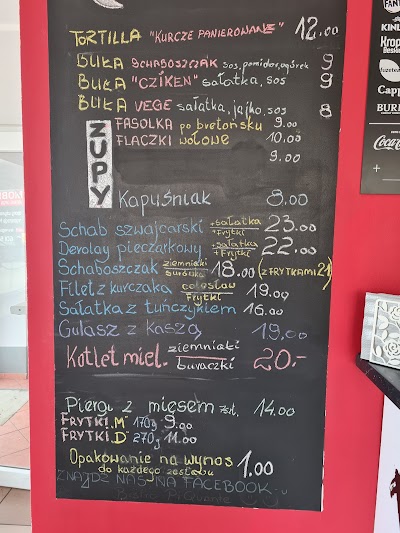 TORTILLA "KURCZE PANIEROWANE" 12.00
BUŁA SCHABOSZCZAK sos, pomidor, ogórek 9
BUŁA "CZIKEN" sałatka, sos 9
BUŁA VEGE sałatka, jajko, sos 8
ZUPY
FASOLKA po bretońsku 9.00
FLACZKI wołowe 10.00
9.00
Kapuśniak 8.00
Schab szwajcarski +sałatka +Frytki 23.00
Devolay pieczarkowy +sałatka +Frytki 22.00
Schaboszczak ziemniaki buraczki 18.00 (z FRYTKAMI 21)
Filet z kurczaka coleslaw Frytki 19.00
Sałatka z tuńczykiem 16.00
Gulasz z kaszą 19.00
Kotlet miel. ziemniaki buraczki 20.-
Piergi z mięsem 7szt. 14.00
FRYTKI „M" 170g 9.00
FRYTKI „D" 270g 11.00
Opakowanie na wynos 1.00
do każdego zestawu
ZNAJDŹ NAS NA FACEBOOK-u
FANT
KINL
Krop
Beskid
Fuzetea
Capp
BURN
Coca